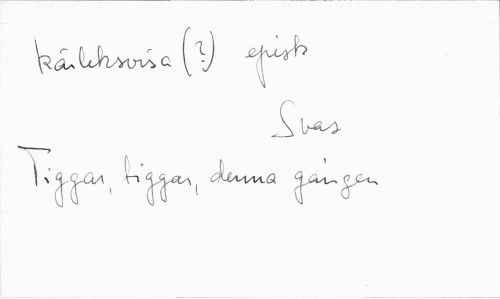 kärleksvisa (?) episk
Svas
Tiggar, tiggar, denna gången